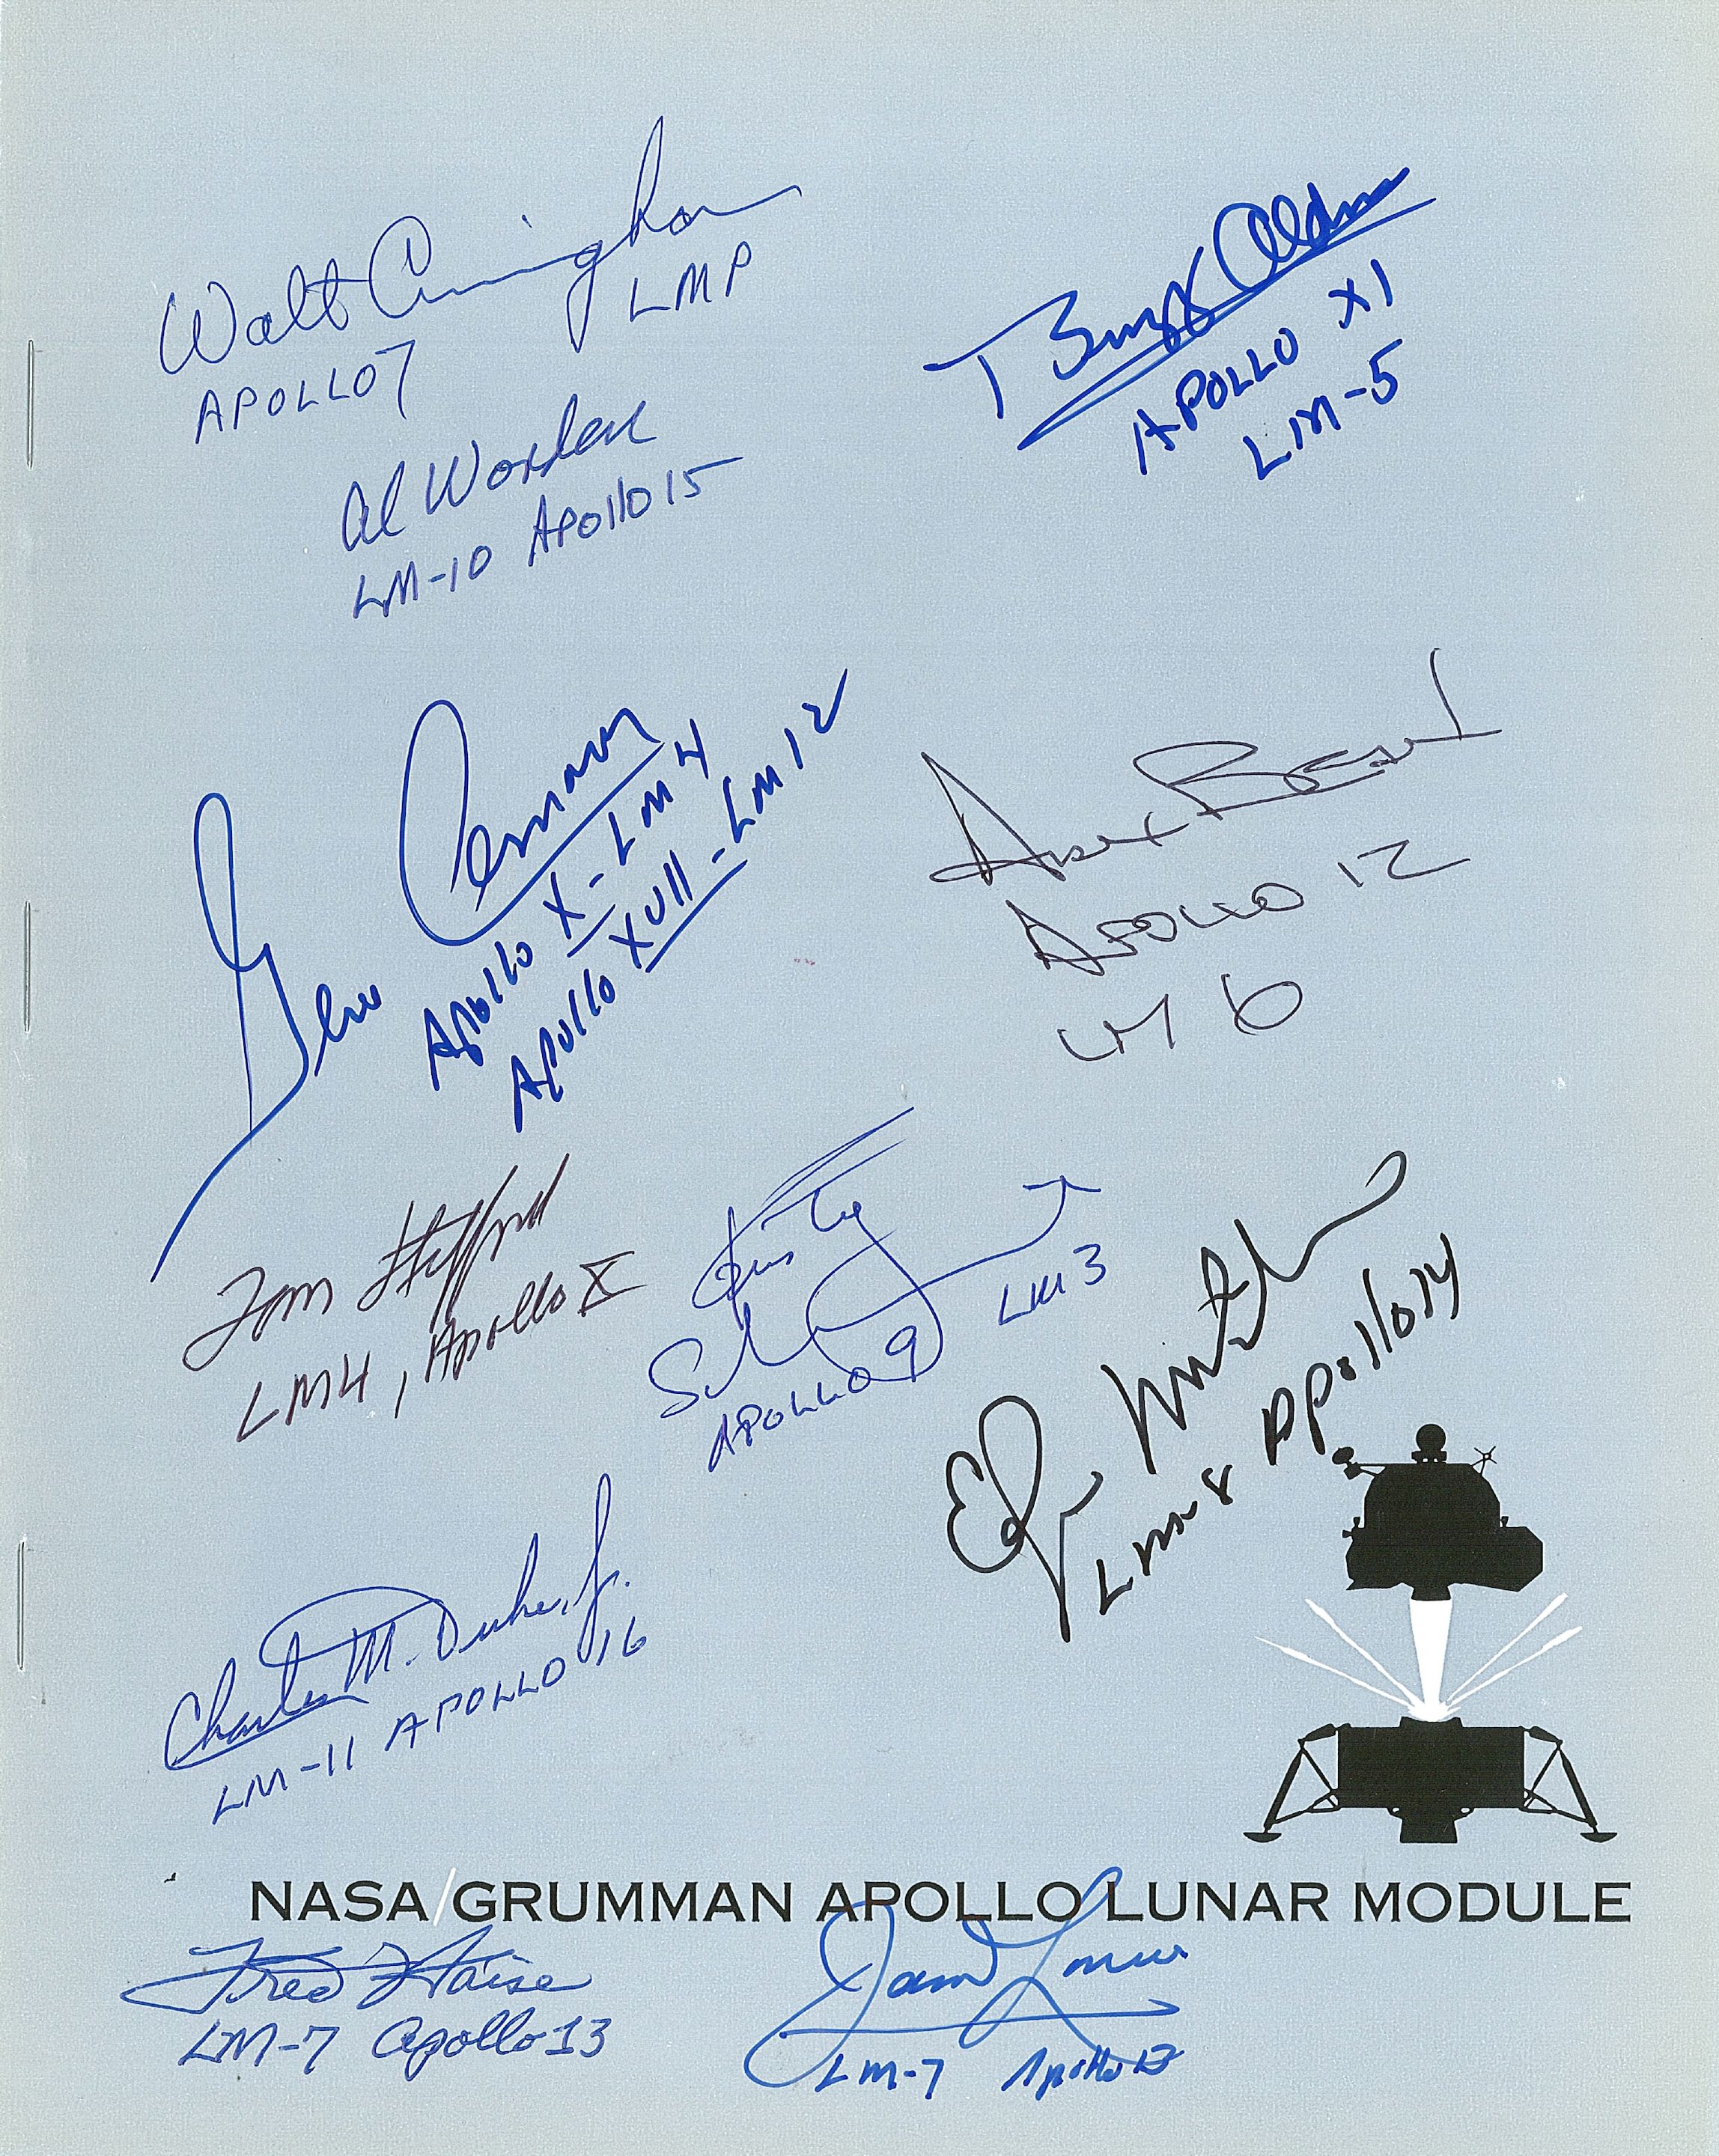 Walt Cunningham
LMP
APOLLO 7
Buzz Aldrin
APOLLO XI
LM-5
Al Worden
LM-10 Apollo 15
Gene Cernan
Apollo X - LM 4
Apollo XVII - LM 12
Alan Bean
APOLLO 12
LM 6
Tom Stafford
LM4, Apollo X
Rusty
Schweickart
APOLLO 9 LM 3
Edgar Mitchell
LM 8 Apollo 14
Charles M. Duke, Jr.
LM-11 APOLLO 16
NASA/GRUMMAN APOLLO LUNAR MODULE
Fred Haise
LM-7 Apollo 13
James Lovell
LM-7 Apollo 13